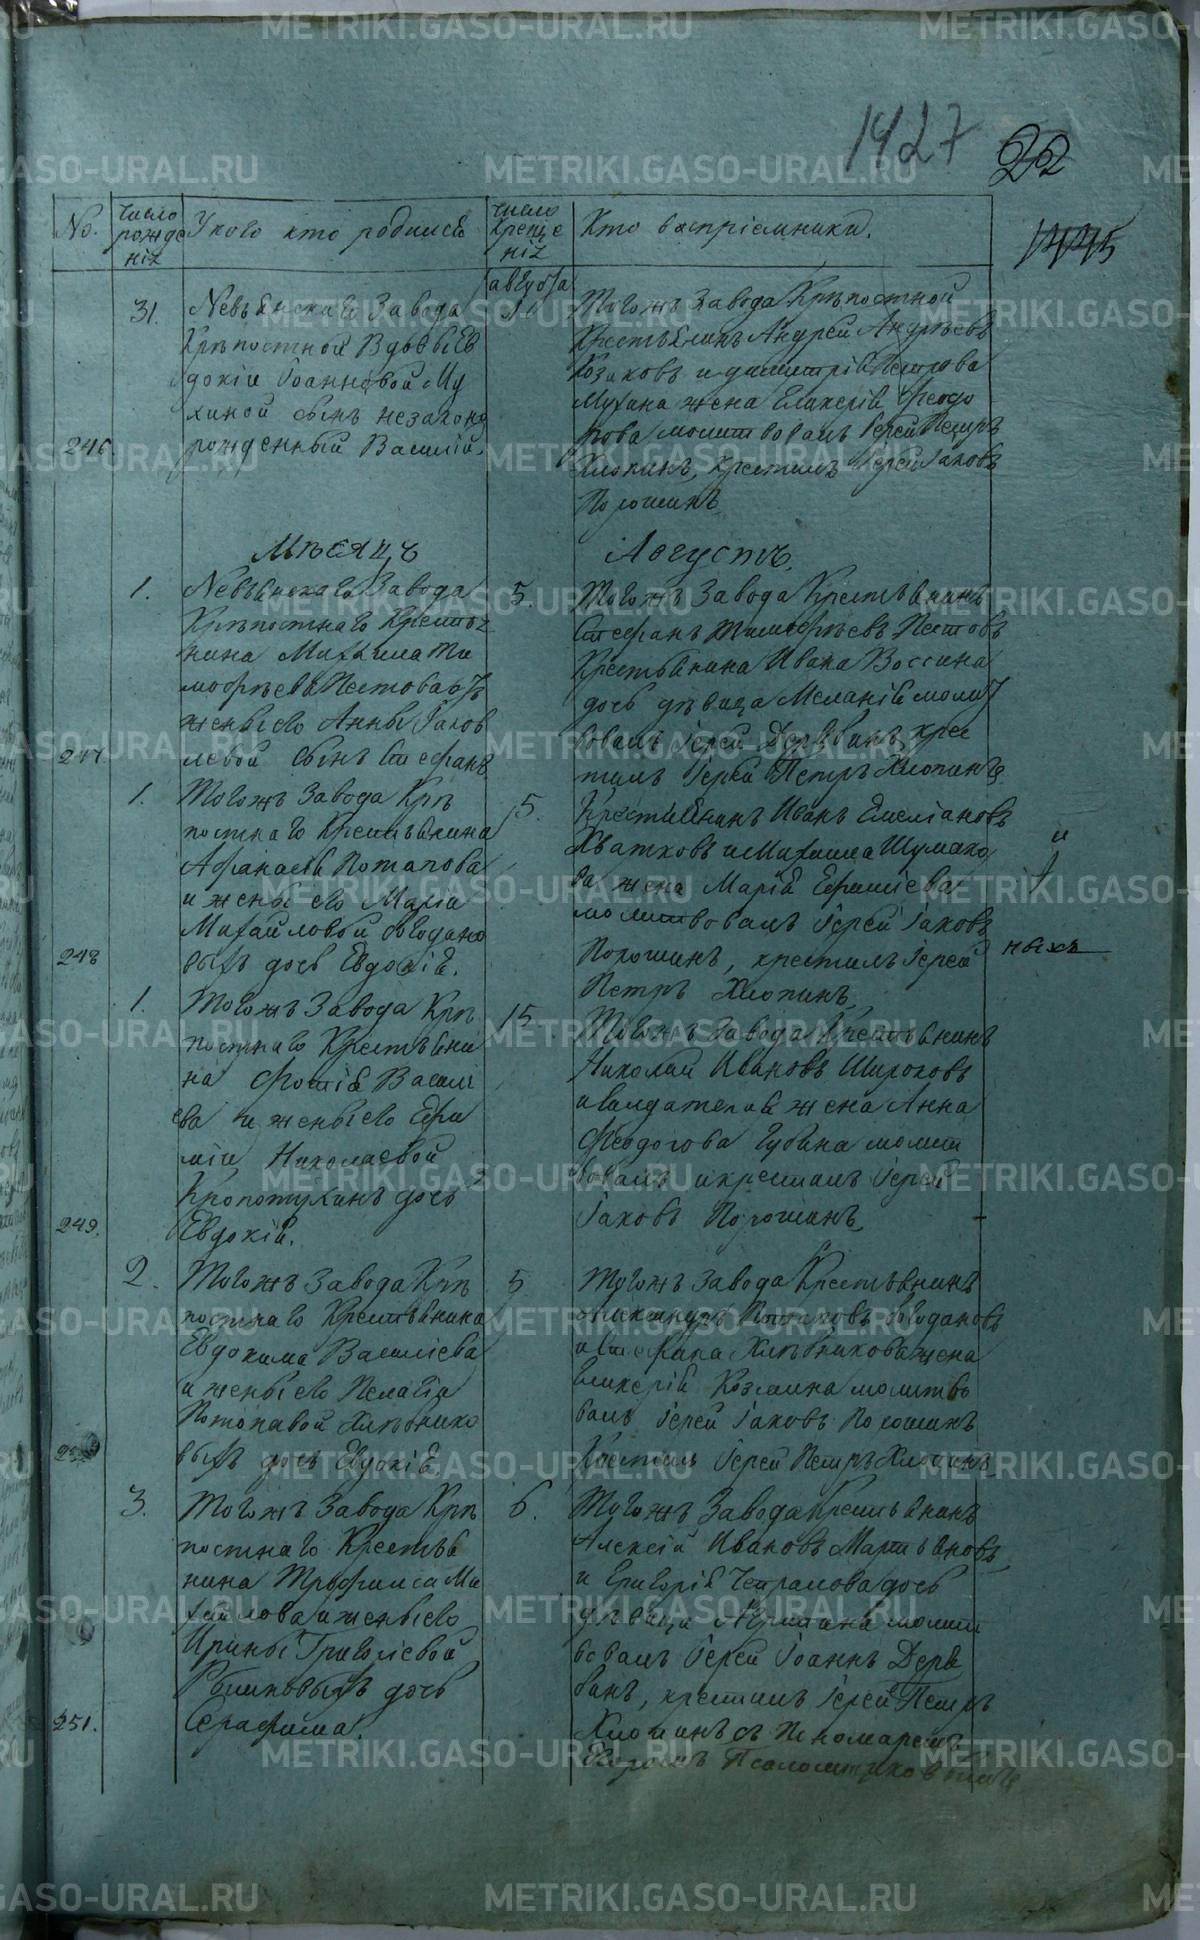 1427 22
1445
No. число рожде нія У кого кто родился число креще нія Кто воспріемники.
августа
31. Невьянскаго Завода 1
Крѣпостной Вдовы Ев
докіи Іоанновой Му
хиной сынъ незаконо
246. рожденный Василій.
Тогожъ Завода Крѣпостной
Крестьянинъ Андрей Андрѣевъ
Козаковъ и Димитрія Петрова
Мухина жена Гликерія Феодо
рова молитвовалъ Іерей Петръ
Хлопинъ, Крестилъ Іерей Іаковъ
Порошинъ
Мѣсяцъ Августъ.
1. Невьянскаго Завода 5
Крѣпостнаго Крестья
нина Михаила Ти
мофѣева Пестова отъ
жены его Анны Іаков
247. левой сынъ Стефанъ
Тогожъ Завода Крестьянинъ
Стефанъ Тимофѣевъ Пестовъ
Крестьянина Ивана
дочь дѣвица Меланія молит
вовалъ Іерей Дерябинъ, Крес
тилъ Іерей Петръ Хлопинъ
1. Тогожъ Завода Крѣ 5.
постнаго Крестьянина
Афанасія Потапова
и жены его Маріи
Михайловой Богодано
248 выхъ дочь Евдокія.
Крестьянинъ Иванъ Емеліановъ
Хватковъ и Михаила Шумако
ва жена Марія Ефимиева
молитвовалъ Іерей Іаковъ
Порошинъ, крестилъ Іерей
Петръ Хлопинъ
и
ныхъ
1. Тогожъ Завода Крѣ 15
постнаго Крестьяни
на Фотія Василі
ева и жены его Ефи
міи Николаевой
Кропотухинъ дочь
249. Евдокія.
Тогожъ Завода Крестьянинъ
Николай Ивановъ Широковъ
и солдатская жена Анна
Феодорова Губина молит
вовалъ и крестилъ Іерей
Іаковъ Порошинъ
2. Тогожъ Завода Крѣ 5
постнаго Крестьянина
Евдокима Василіева
и жены его Пелагіи
Потаповой Хлѣбнико
выхъ дочь Евдокія.
Тогожъ Завода Крестьянинъ
Александръ Потаповъ Богодановъ
и Стефана Хлѣбникова жена
Гликерія Козмина молитво
валъ Іерей Іаковъ Порошинъ
Крестилъ Іерей Петръ Хлопинъ
3. Тогожъ Завода Крѣ 6.
постнаго Крестья
нина Трофима Ми
хайлова и жены его
Ирины Григоріевой
выхъ дочь
251. Серафима.
Тогожъ Завода Крестьянинъ
Алексѣй Ивановъ Мартьяновъ
и Григорія дочь
дѣвица молит
вовалъ Іерей Іоаннъ Деря
бинъ, крестилъ Іерей Петръ
Хлопинъ съ Пономаремъ